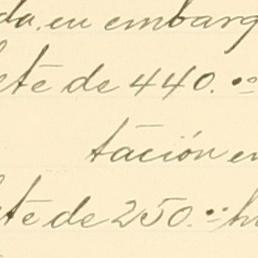 da, en embarg
ete de 440.
tación en
ete de 250.